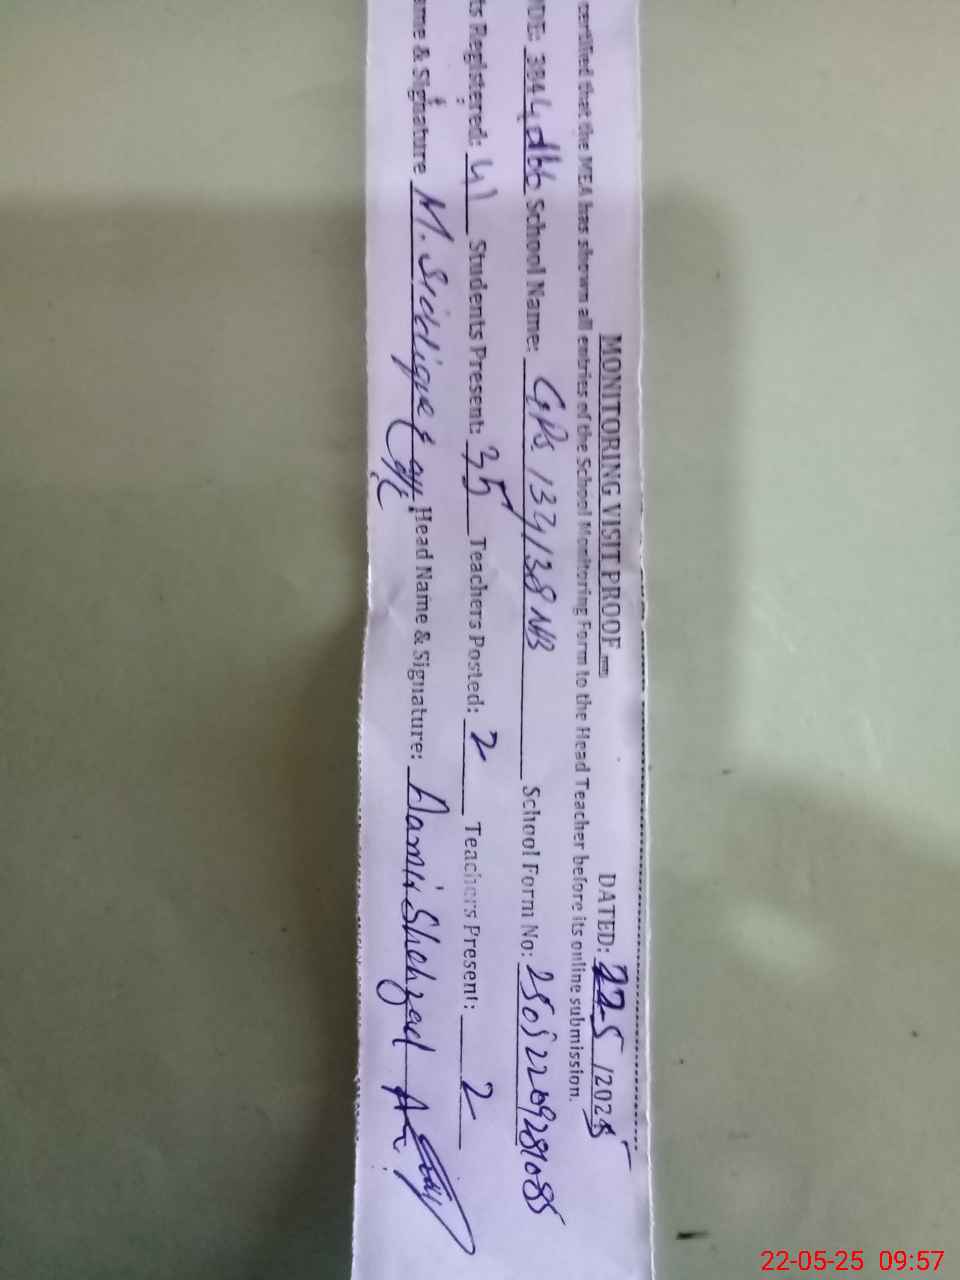 MONITORING VISIT PROOF DATED: 22-5 /2025
certified that the MEA has shown all entries of the School Monitoring Form to the Head Teacher before its online submission.
ODE: School Name: GPS 137/138 NB School Form No:
ts Registered: 41 Students Present: 35 Teachers Posted: 2 Teachers Present: 2
ame & Signature M. Siddique Head Name & Signature: Aamir Shehzad
22-05-25 09:57